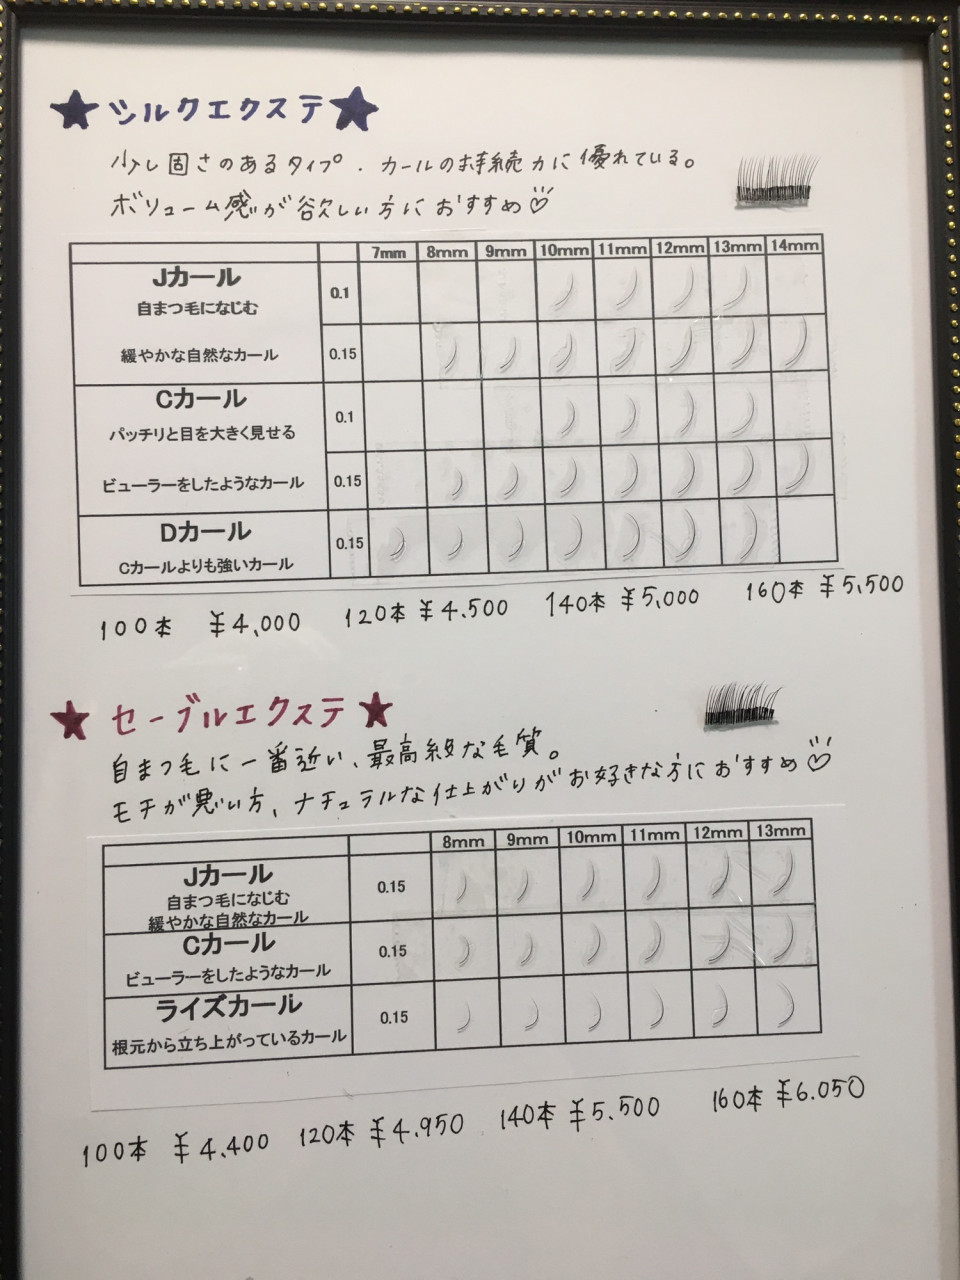 ★シルクエクステ★
少し固さのあるタイプ．カールの持続力に優れている。
ボリューム感が欲しい方におすすめ♡
7mm 8mm 9mm 10mm 11mm 12mm 13mm 14mm
Jカール
自まつ毛になじむ 0.1
緩やかな自然なカール 0.15
Cカール
パッチリと目を大きく見せる 0.1
ビューラーをしたようなカール 0.15
Dカール
Cカールよりも強いカール 0.15
100本 ¥4,000 120本 ¥4.500 140本 ¥5,000 160本 ¥5,500
★セーブルエクステ★
自まつ毛に一番近い、最高級な毛質。
モチが悪い方、ナチュラルな仕上がりがお好きな方におすすめ♡
8mm 9mm 10mm 11mm 12mm 13mm
Jカール
自まつ毛になじむ 0.15
緩やかな自然なカール
Cカール
ビューラーをしたようなカール 0.15
ライズカール
根元から立ち上がっているカール 0.15
100本 ¥4.400 120本 ¥4.950 140本 ¥5.500 160本 ¥6.050